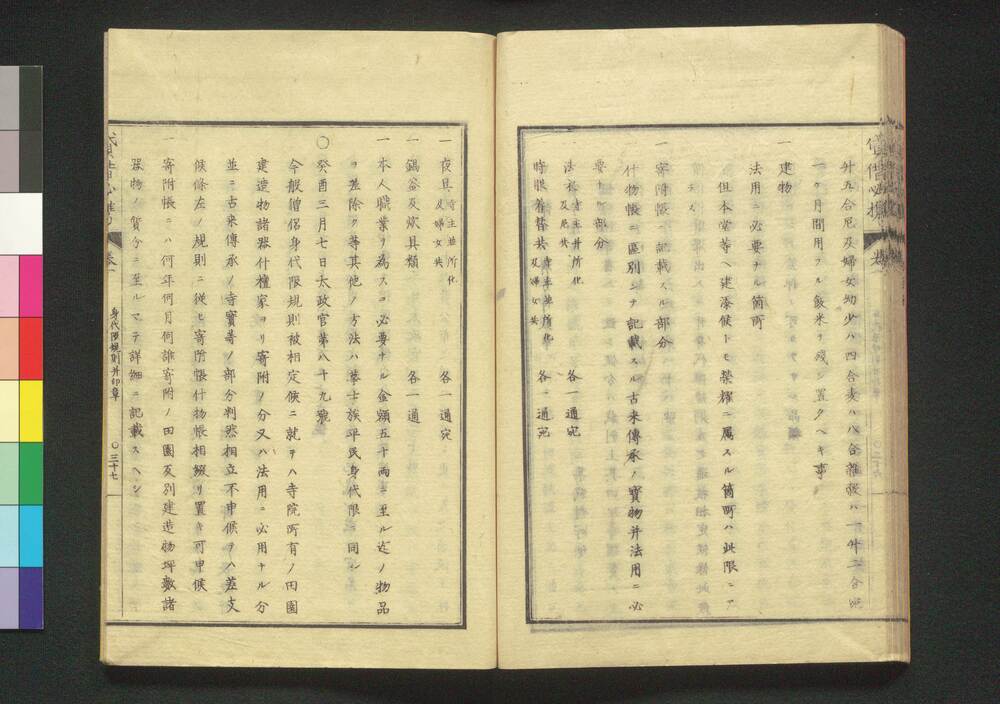 升五合尼及婦女幼少ハ四合麦ハ八合雑穀ハ一升二合宛
一ヶ月間用フル飯米ヲ残シ置クヘキ事
一 建物
法用ニ必要ナル箇所
但本堂等ヘ建添候トモ榮耀ニ属スル箇所ハ此限ニア
ラス
一 寄附帳ニ記載スル部分
什物帳ニ區別シテ記載スル古来傳承ノ寶物并法用ニ必
要ナル部分
法衣 寺主并所化及尼共 各一通宛
時服着替共 寺主並所化及婦女共 各一通宛
一 夜具 寺主並所化及婦女共 各一通宛
一 鍋釜及炊具類 各一通
一 本人職業ヲ為スコ必要ナル金額五十両ニ至ル迄ノ物品
ヲ差除ク等其他ノ方法ハ華士族平民身代限ニ同シ
〇癸酉三月七日太政官第八十九號
今般僧侶身代限規則被相定候ニ就テハ寺院所有ノ田園
建造物諸器什檀家ヨリ寄附ノ分又ハ法用ニ必用ナル分
並ニ古来傳承ノ寺寶等ノ部分判然相立不申候テハ差支
候條左ノ規則ニ従ヒ寄附帳什物帳相綴リ置キ可申候
一 寄附帳ニハ何年何月何誰寄附ノ田園及別建造物坪數諸
器物ノ貨分ニ至ルマテ詳細ニ記載スヘシ
身代限規則并印章
〇三十七